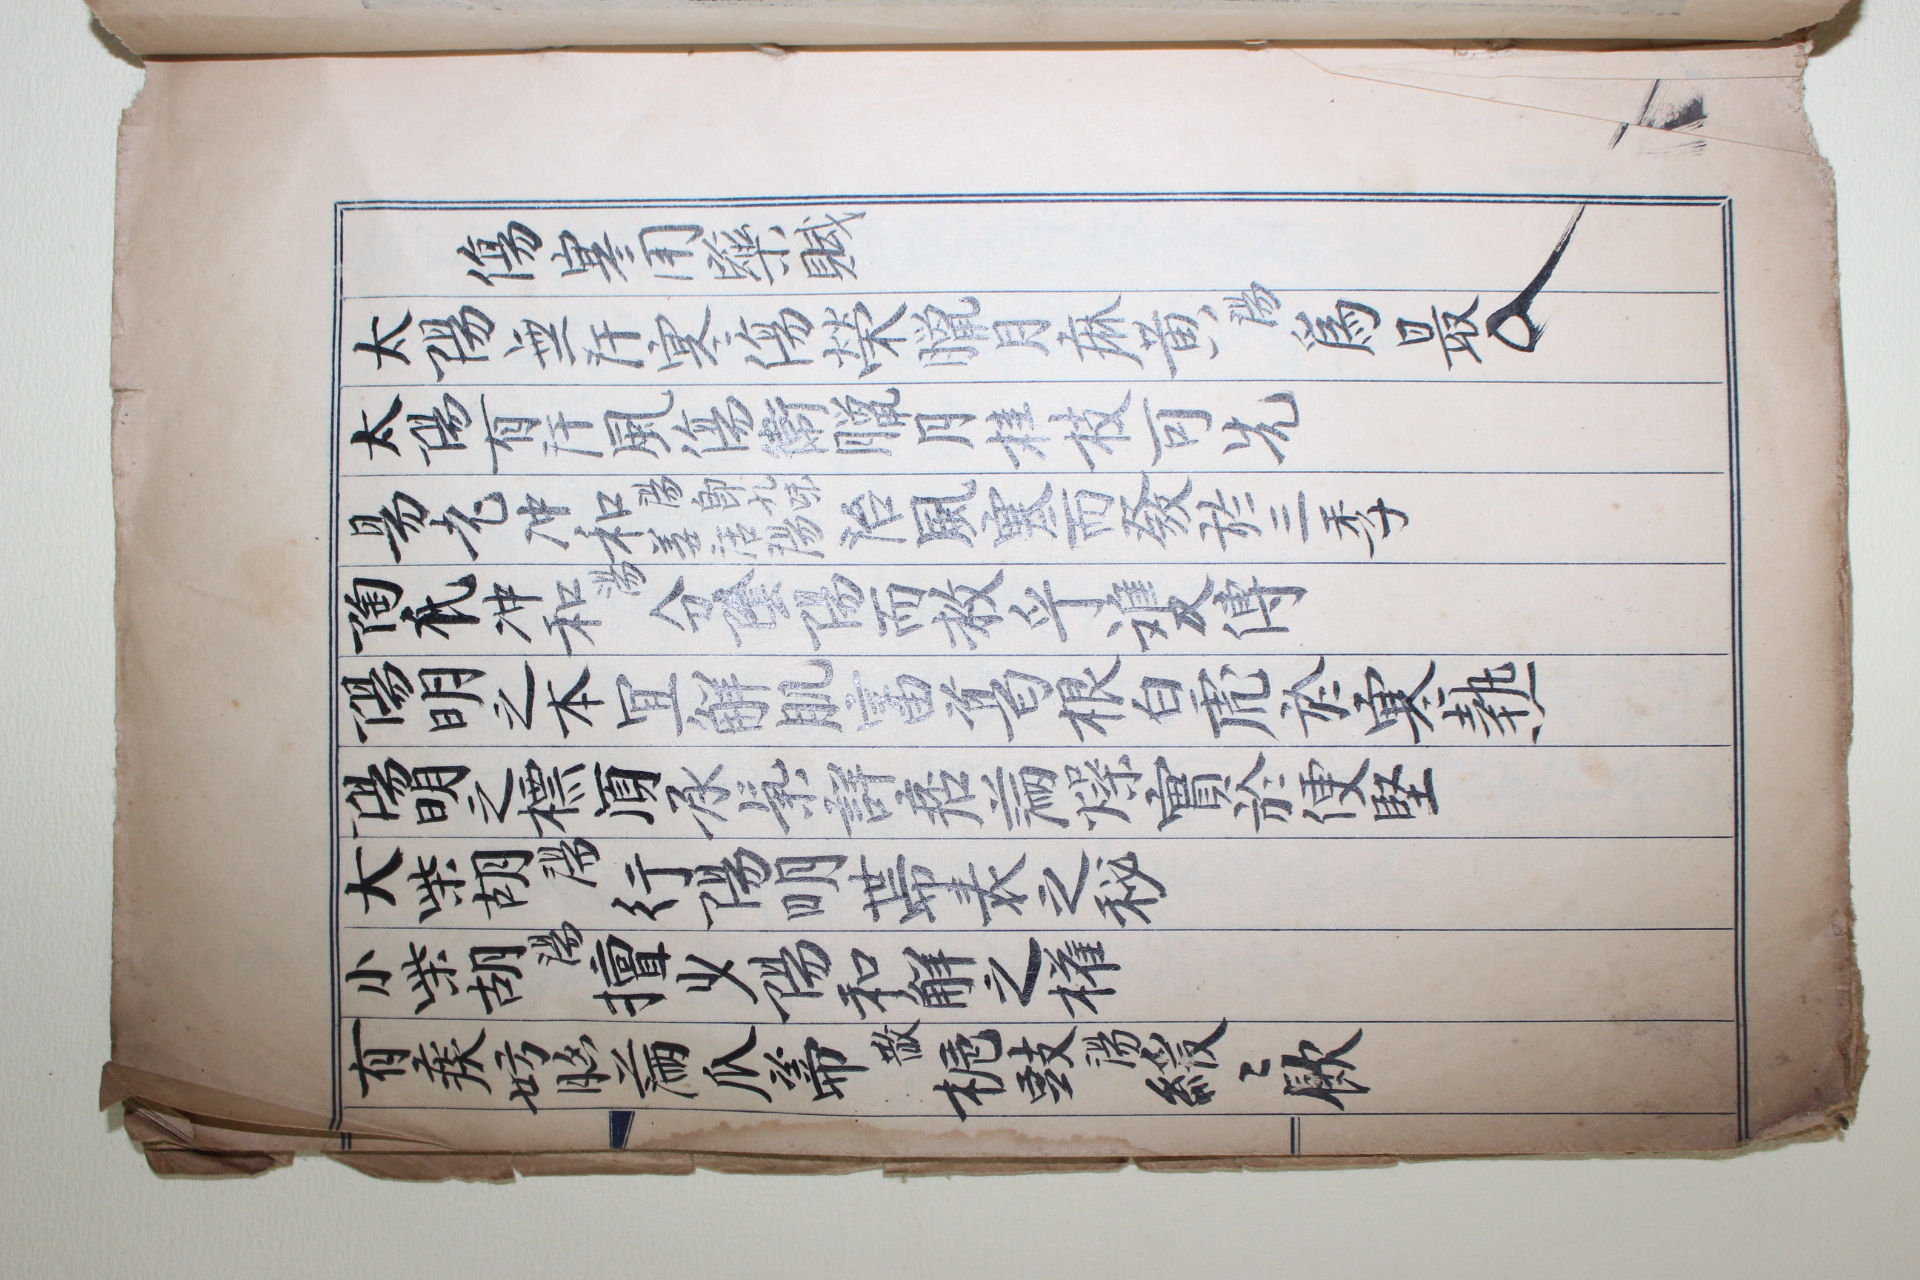 傷寒用藥賦
太陽無汗寒傷榮臘月麻黃湯爲最
太陽有汗風傷衛臘月桂枝可先
易老冲和湯即九味羌活湯治風寒而發於三季
陶氏冲和湯分陰陽而救乎雙傳
陽明之本冝解肌富葛根白虎於寒熱
陽明之標須承氣詳痞滿燥實於便堅
大柴胡湯行陽明帶表之秘
小柴胡湯擅少陽和解之權
有痰妨胸滿瓜蒂散梔豉湯緩〻飮